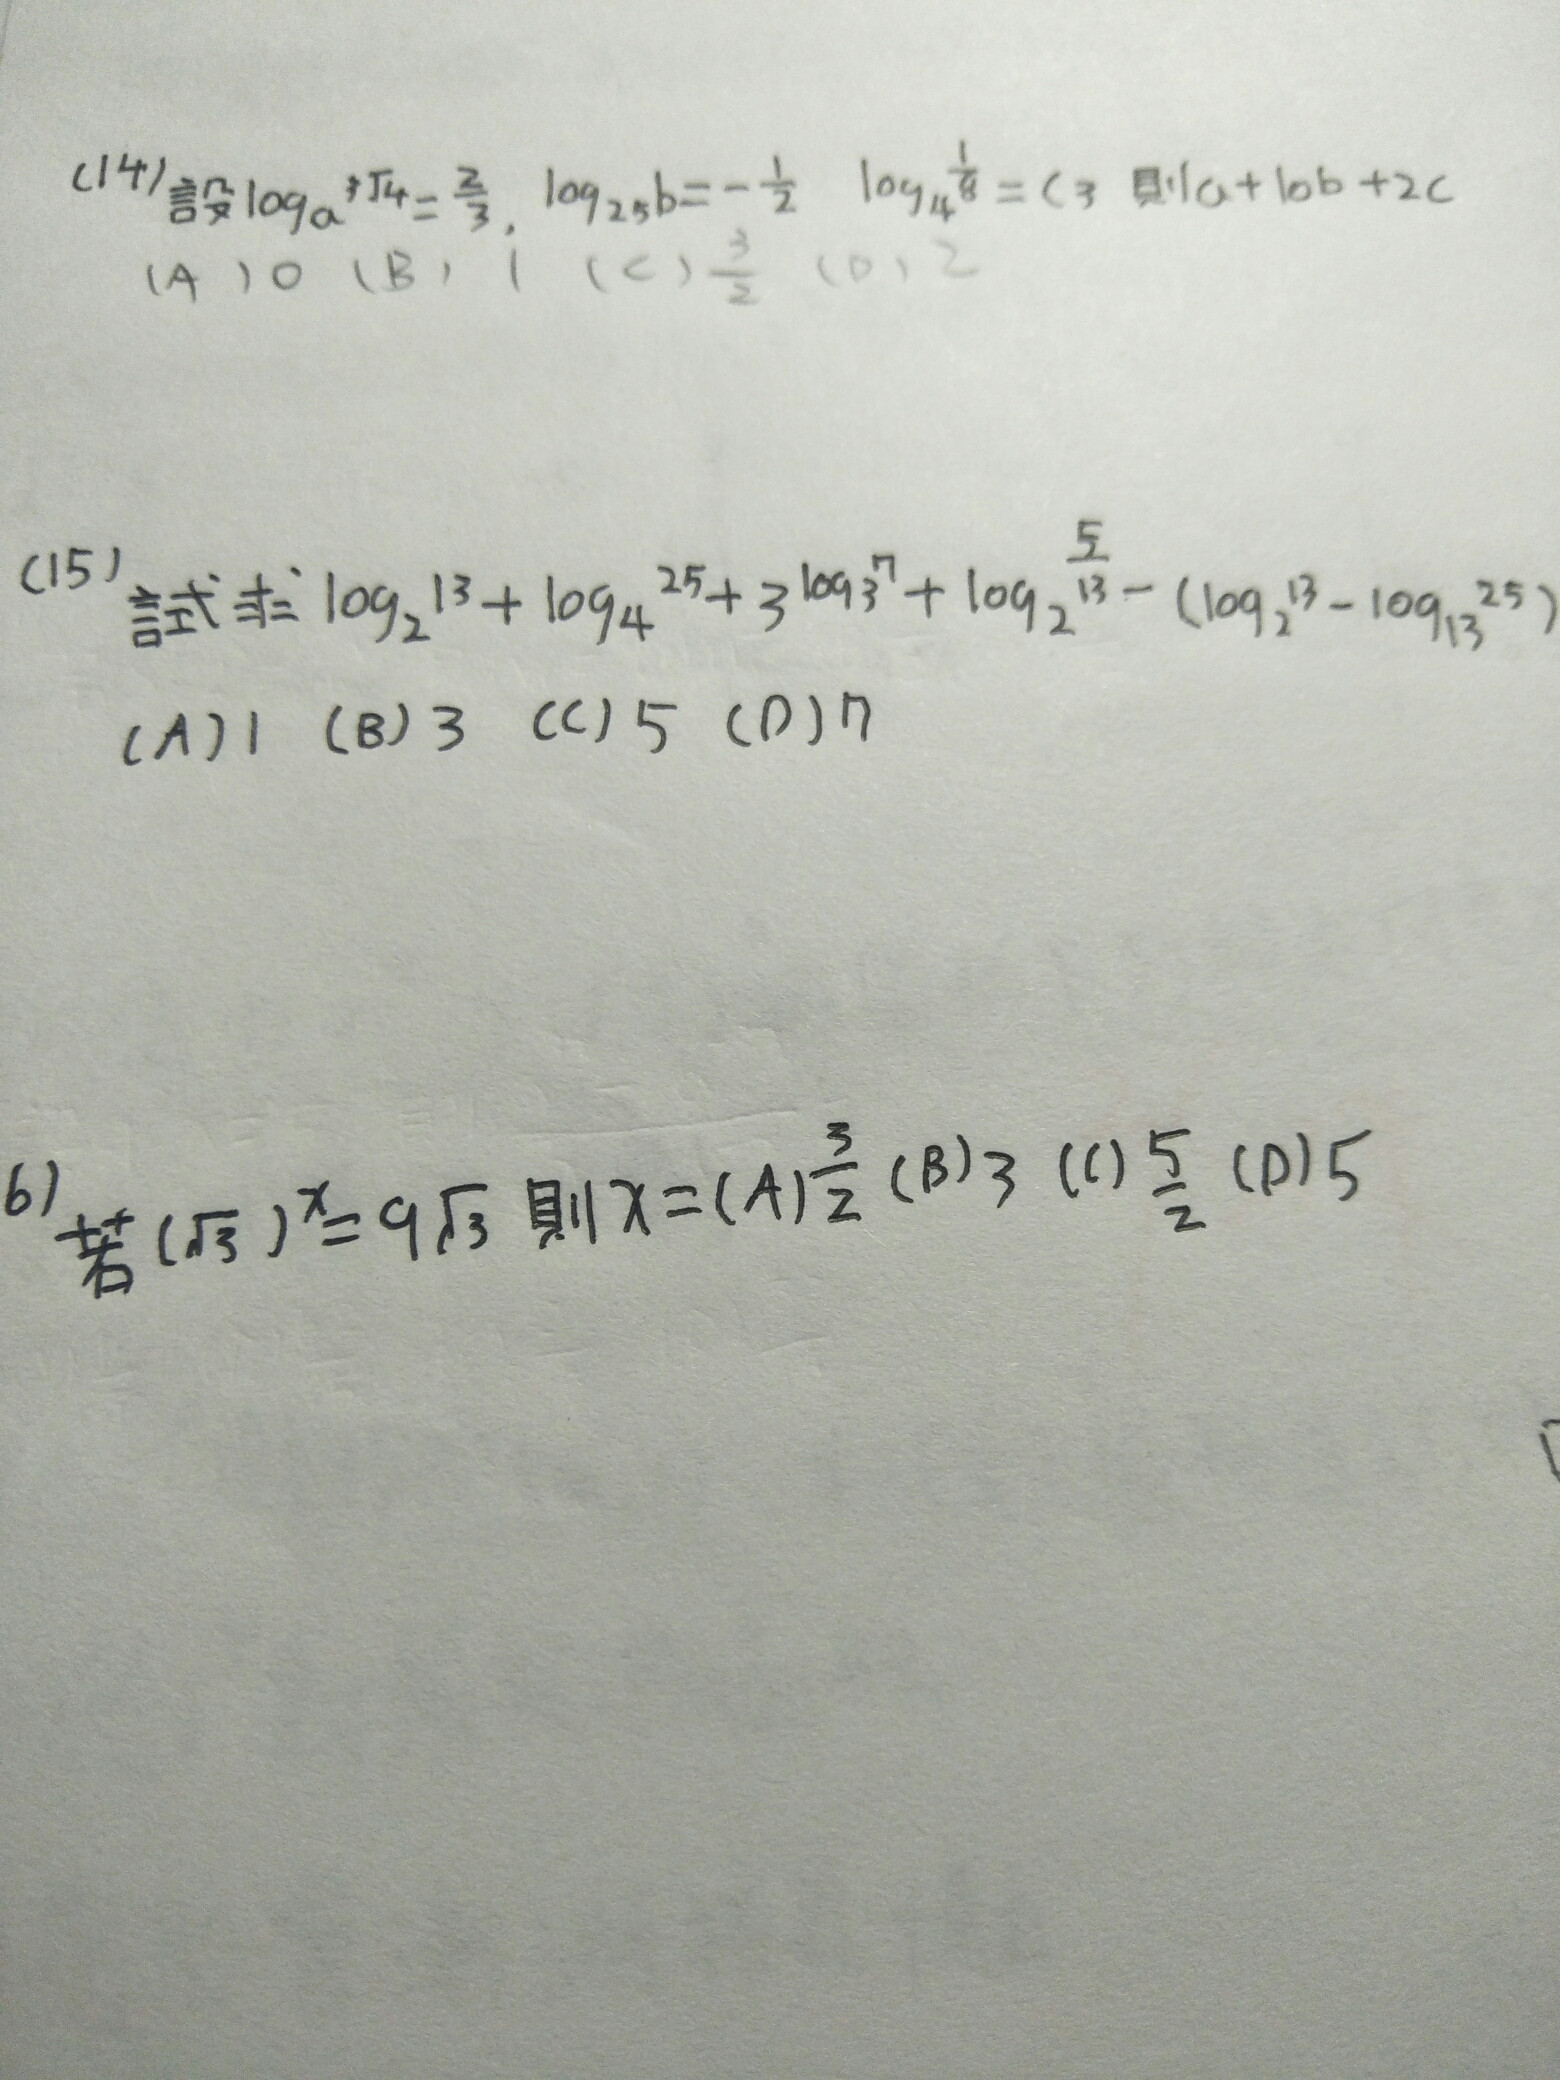 (14) 設 logₐ ³√4 = 2/3, log₂₅b = -1/2 log₄ 1/8 = C 3 則 a + 10b + 2C
(A) 0 (B) 1 (C) 3/2 (D) 2
(15) 試求 log₂ 13 + log₄ 25 + 3^(log₃ 7) + log₂ 5/13 - (log₂ 13 - log₁₃ 25)
(A) 1 (B) 3 (C) 5 (D) 7
6) 若 (√3)^x = 9√3 則 x = (A) 3/2 (B) 3 (C) 5/2 (D) 5